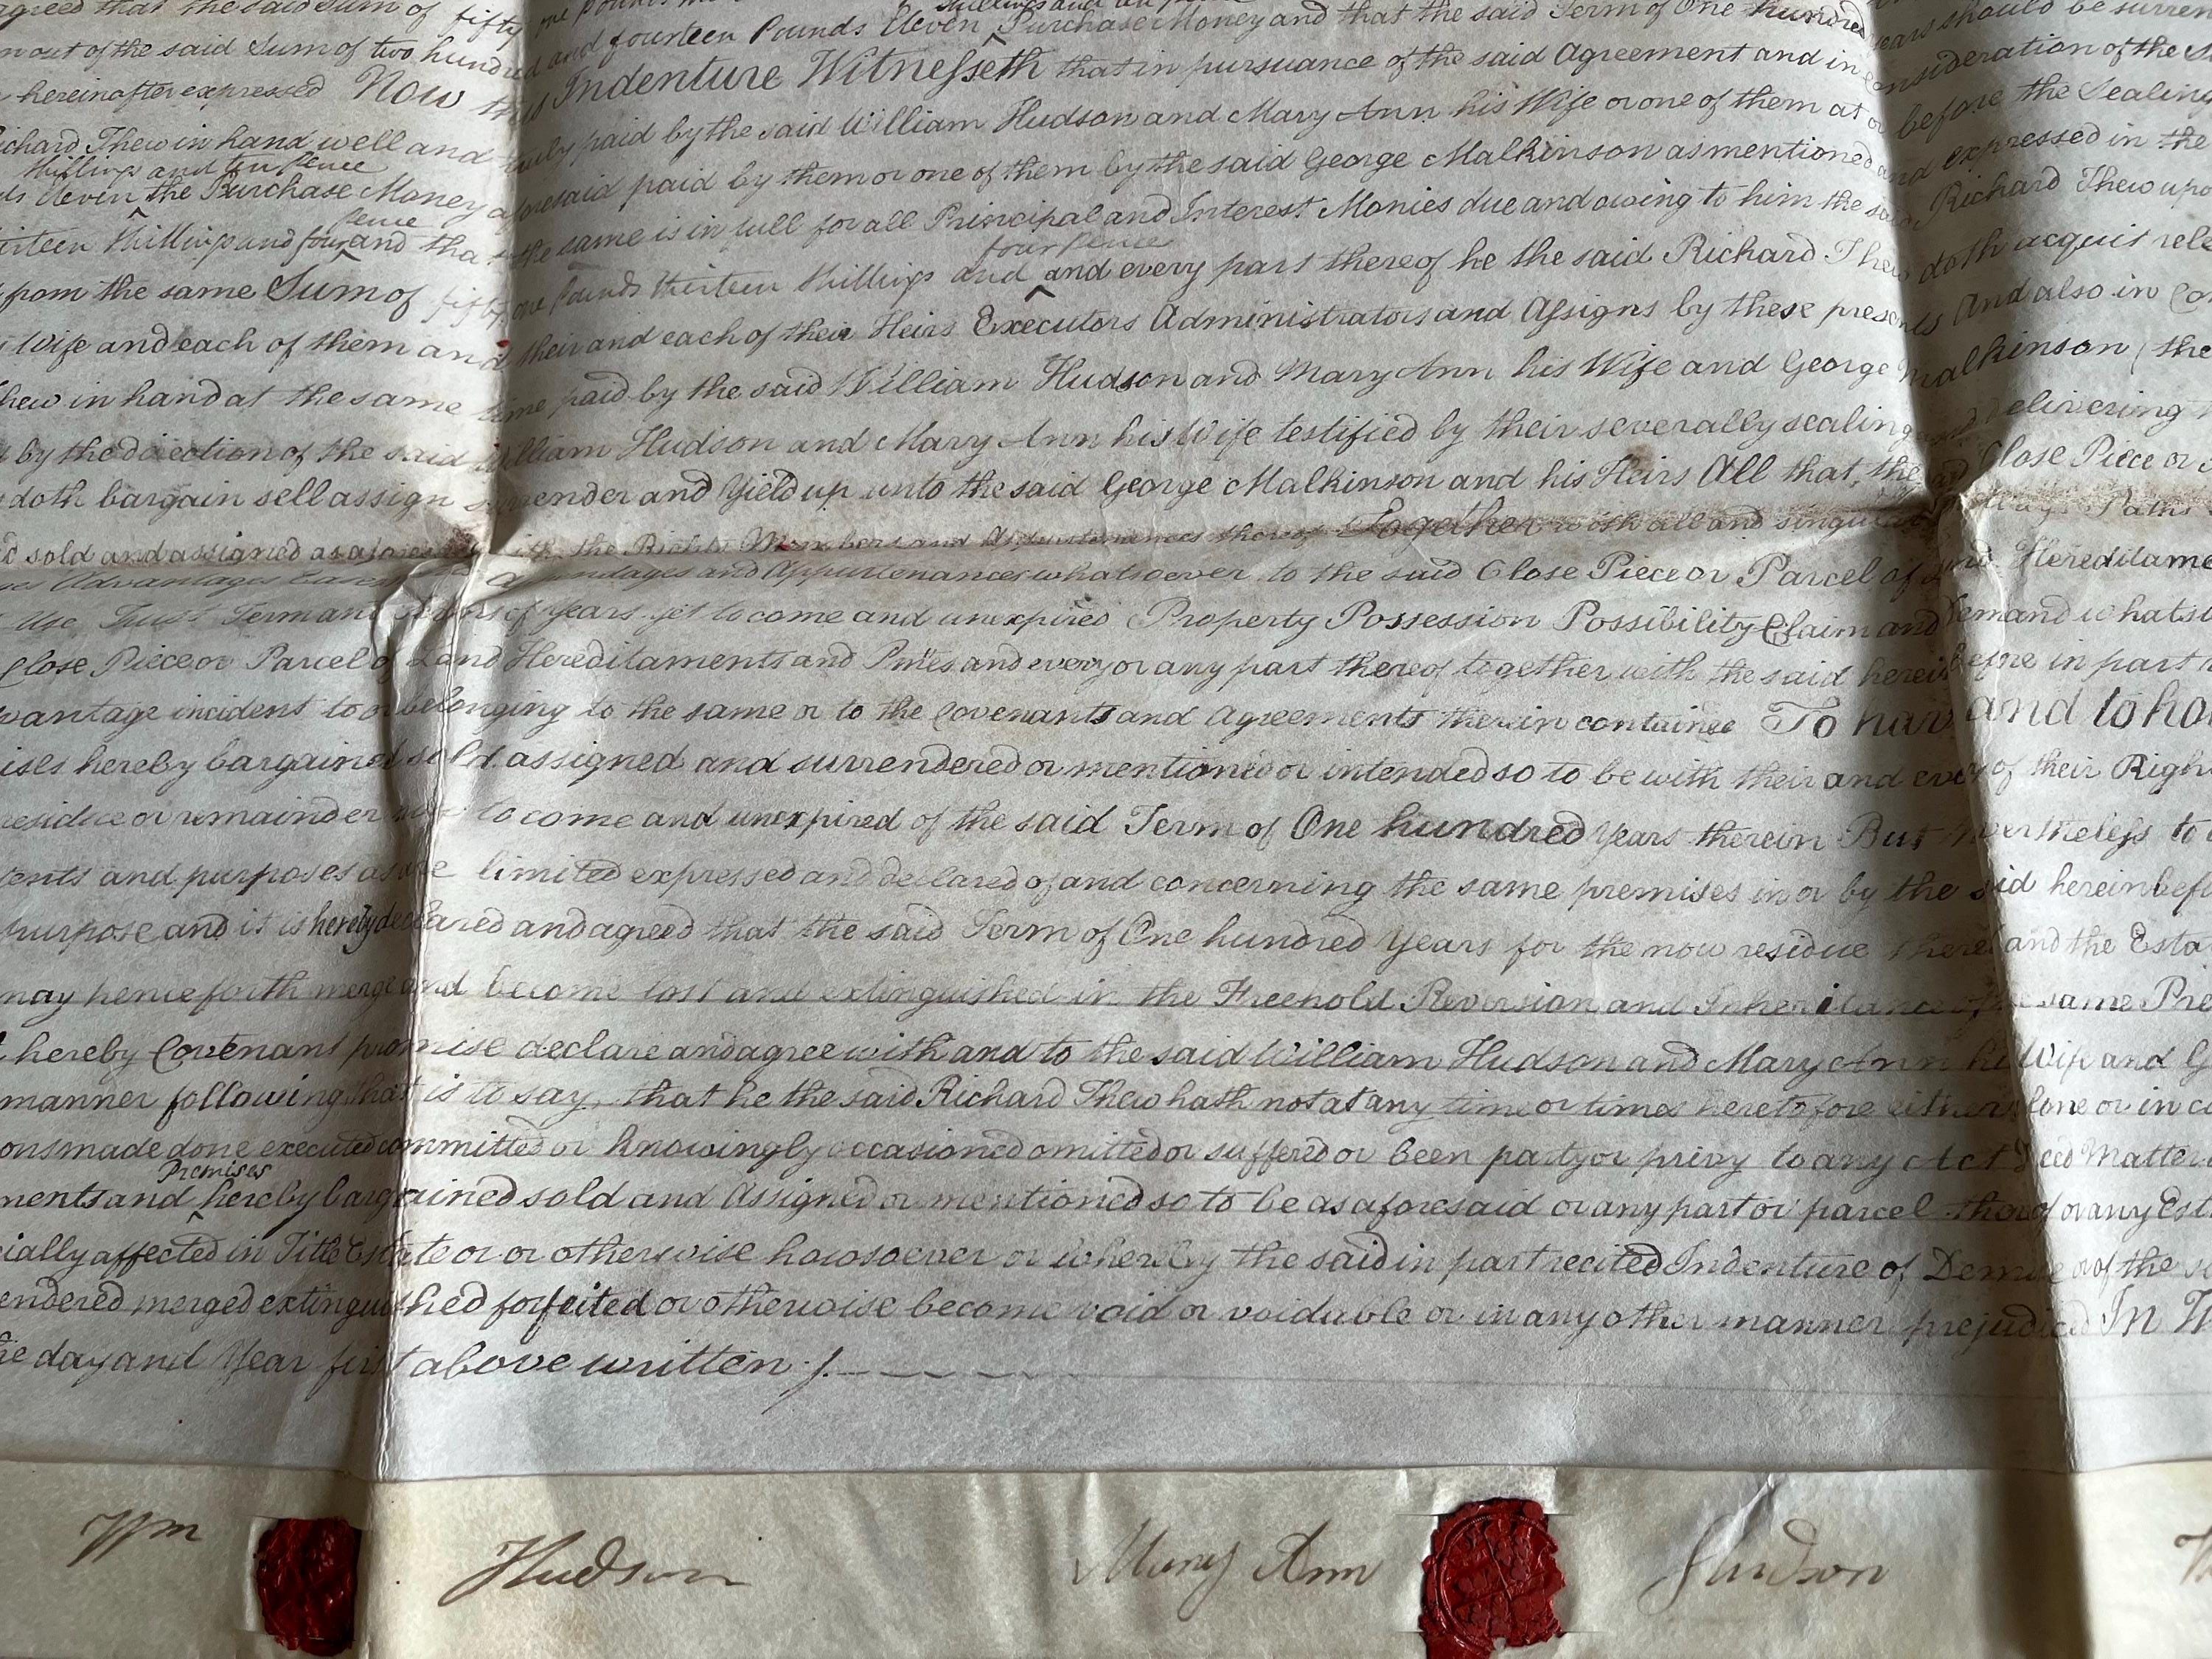 agreed that the said Sum of fifty one pounds
shillings and ten pence
m out of the said Sum of two hundred and fourteen Pounds Eleven ‸ Purchase Money and that the said Term of One hundred years should be surren
hereinafter expressed Now this Indenture Witnesseth that in pursuance of the said Agreement and in consideration of the S
ichard Thew in hand well and truly paid by the said William Hudson and Mary Ann his Wife or one of them at or before the Sealing
Shillings and ten Pence
ds Eleven the ‸ Purchase Money aforesaid paid by them or one of them by the said George Malkinson as mentioned and expressed in the
pence
irteen Shillings and four ‸ and that the same is in full for all Principal and Interest Monies due and owing to him the said Richard Thew upo
four Pence
from the same Sum of fifty one Pounds thirteen Shillings and ‸ and every part thereof he the said Richard Thew doth acquit rele
Wife and each of them and their and each of their Heirs Executors Administrators and Assigns by these presents And also in Con
hew in hand at the same time paid by the said William Hudson and Mary Ann his Wife and George Malkinson (the
by the direction of the said William Hudson and Mary Ann his Wife testified by their severally sealing and delivering
doth bargain sell assign surrender and Yield up unto the said George Malkinson and his Heirs All that, the said Close Piece or
d sold and assigned as aforesaid with the Rights Members and Appurtenances thereof Together with all and singular Ways Paths
es Advantages and Appurtenances whatsoever to the said Close Piece or Parcel of Land Heredilame
Use Trust Term and Terms of Years yet to come and unexpired Property Possession Possibility Claim and Demand whatso
Close, Piece or Parcel of Land Hereditaments and Pmes and every or any part thereof together with the said hereinbefore in part r
vantage incident to or belonging to the same or to the Covenants and Agreements therein contained To have and to ho
ises hereby bargained sold assigned and surrendered or mentioned or intended so to be with their and every of their Righ
residue or remainder now to come and unexpired of the said Term of One hundred Years therein But nevertheless to
tents and purposes as are limited expressed and declared of and concerning the same premises in or by the said hereinbef
purpose and it is hereby declared and agreed that the said Term of One hundred Years for the now residue thereof and the Esta
may henceforth merge and become lost and extinguished in the Freehold Reversion and Inheritance of the same Pre
hereby Covenant promise declare and agree with and to the said William Hudson and Mary Ann his Wife and G
manner following that is to say, that he the said Richard Thew hath not at any time or times heretofore either alone or in co
ons made done executed committed or knowingly occasioned omitted or suffered or been party or privy to any Act Deed Matter
Premises
ments and ‸ hereby bargained sold and Assigned or mentioned so to be as aforesaid or any part or parcel thereof or any Est
ially affected in Title Estate or or otherwise howsoever or whereby the said in part recited Indenture of Demise or of the
endered merged extinguished forfeited or otherwise become void or voidable or in any other manner prejudiced In W
he day and Year first above written /.
Wm Hudson Mary Ann Hudson